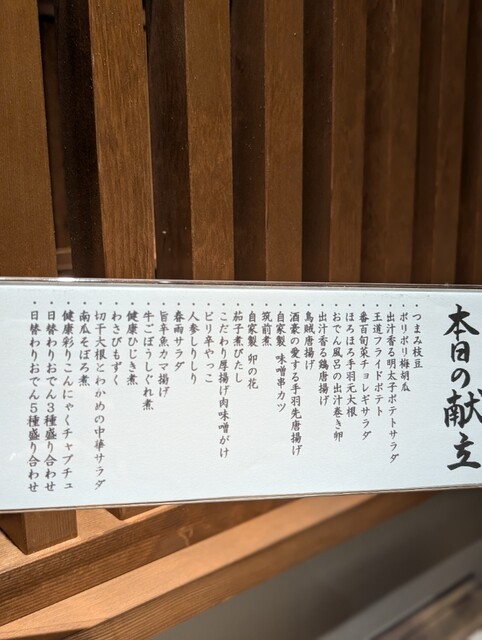 本日の献立
・つまみ枝豆
・ポリポリ梅胡瓜
・出汁香る明太子ポテトサラダ
・王道フライドポテト
・番百旬菜チョレギサラダ
・ほろほろ手羽元大根
・おでん風呂の出汁巻き卵
・出汁香る鶏唐揚げ
・烏賊唐揚げ
・酒豪の愛する手羽先唐揚げ
・自家製 味噌串カツ
・筑前煮
・自家製 卯の花
・茄子煮びたし
・こだわり厚揚げ肉味噌がけ
・ピリ辛やっこ
・人参しりしり
・春雨サラダ
・旨辛魚カマ揚げ
・牛ごぼうしぐれ煮
・健康ひじき煮
・わさびもずく
・切干大根とわかめの中華サラダ
・南瓜そぼろ煮
・健康彩りこんにゃくチャプチュ
・日替わりおでん3種盛り合わせ
・日替わりおでん5種盛り合わせ